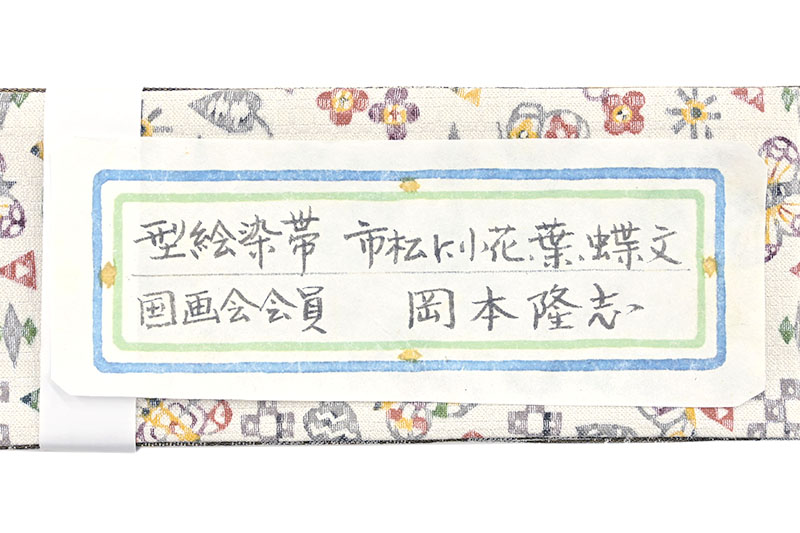 型絵染帯 市松に小花、葉、蝶文
国画会会員 岡本隆志